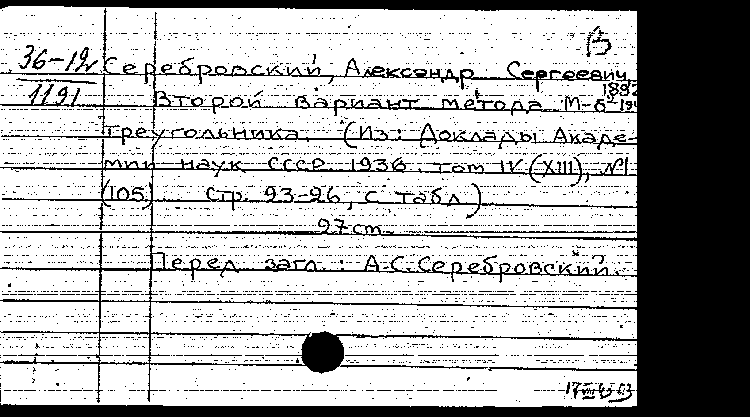 36-12
1191
Серебровский, Александр Сергеевич,
1892
Второй вариант метода М-6² 194
треугольника. (Из: Доклады Акаде-
мии наук СССР 1936. том IV (XIII), №1
(105) Стр. 23-26, с табл.)
27 cm.
Перед загл.: А.С. Серебровский.